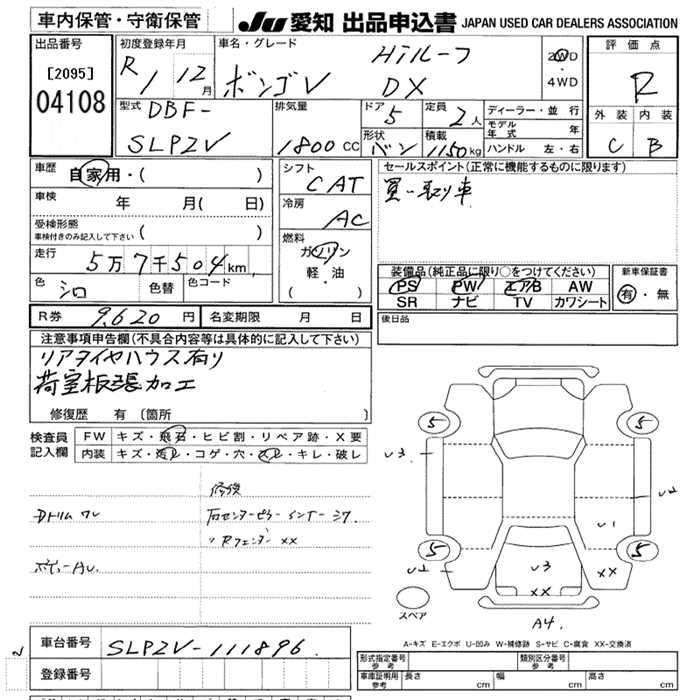 車内保管・守衛保管
JU 愛知 出品申込書 JAPAN USED CAR DEALERS ASSOCIATION
出品番号
[2095]
04108
初度登録年月
R1 / 12月
車名・グレード
Hiルーフ
ボンゴV DX
2WD
・
4WD
評価点
R
外装 内装
C B
型式 DBF-
SLP2V
排気量
1800 CC
ドア 5
形状 バン
定員 2人
積載 1150kg
ディーラー・並行
モデル年式 年
ハンドル 左・右
車歴 自家用・( )
車検 年 月( 日)
受検形態
車検付きのみ記入して下さい ( )
走行 5万7千504km
色 シロ 色替 色コード
シフト
CAT
冷房
AC
燃料
ガソリン
軽・油
( )
セールスポイント(正常に機能するものに限ります)
買い取り車
装備品(純正品に限り○をつけてください)
PS PW エアB AW
SR ナビ TV カワシート
新車保証書
有・無
R券 9,620円 名変期限 月 日
後日品
注意事項申告欄(不具合内容等は具体的に記入して下さい)
リアタイヤハウス有り
荷室板張加工
修復歴 有 〔箇所 〕
検査員
記入欄
FW キズ・飛石・ヒビ割・リペア跡・X要
内装 キズ・汚レ・コゲ・穴・スレ・キレ・破レ
修復
Dトリム ワレ
右センターピラーインナー
〃Rフェンダー XX
ボディーAU.
5 5
U3
U2
U1
5 5
U2
U3
XX
XX
スペア
A4.
A-キズ E-エクボ U-凹み W-補修跡 S-サビ C-腐食 XX-交換済
車台番号 SLP2V-111896.
登録番号
形式指定番号
参考
類別区分番号
参考
車庫証明用
参考
長さ cm 幅 cm 高さ cm